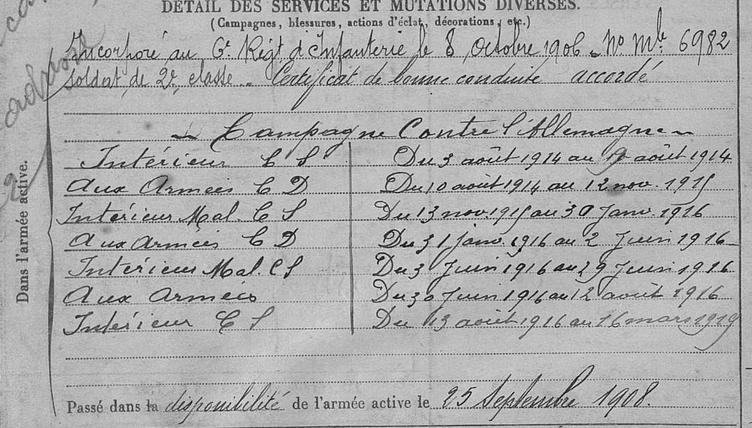 DÉTAIL DES SERVICES ET MUTATIONS DIVERSES.
(Campagnes, blessures, actions d'éclat, décorations, etc.)
Incorporé au 6e Régt d'Infanterie le 8 Octobre 1906 - No Mle 6982
soldat de 2e classe. Certificat de bonne conduite accordé
Campagne Contre l'Allemagne
Intérieur C S Du 3 août 1914 au 9 août 1914
Aux Armées C D Du 10 août 1914 au 12 nov. 1915
Intérieur Mal. C S Du 13 nov. 1915 au 30 Janv. 1916
Aux Armées C D Du 31 janv. 1916 au 2 Juin 1916
Intérieur Mal. C S Du 3 Juin 1916 au 29 Juin 1916
Aux Armées Du 30 Juin 1916 au 12 août 1916
Intérieur C S Du 13 août 1916 au 16 mars 1919
Passé dans la disponibilité de l'armée active le 25 Septembre 1908.
Dans l'armée active.